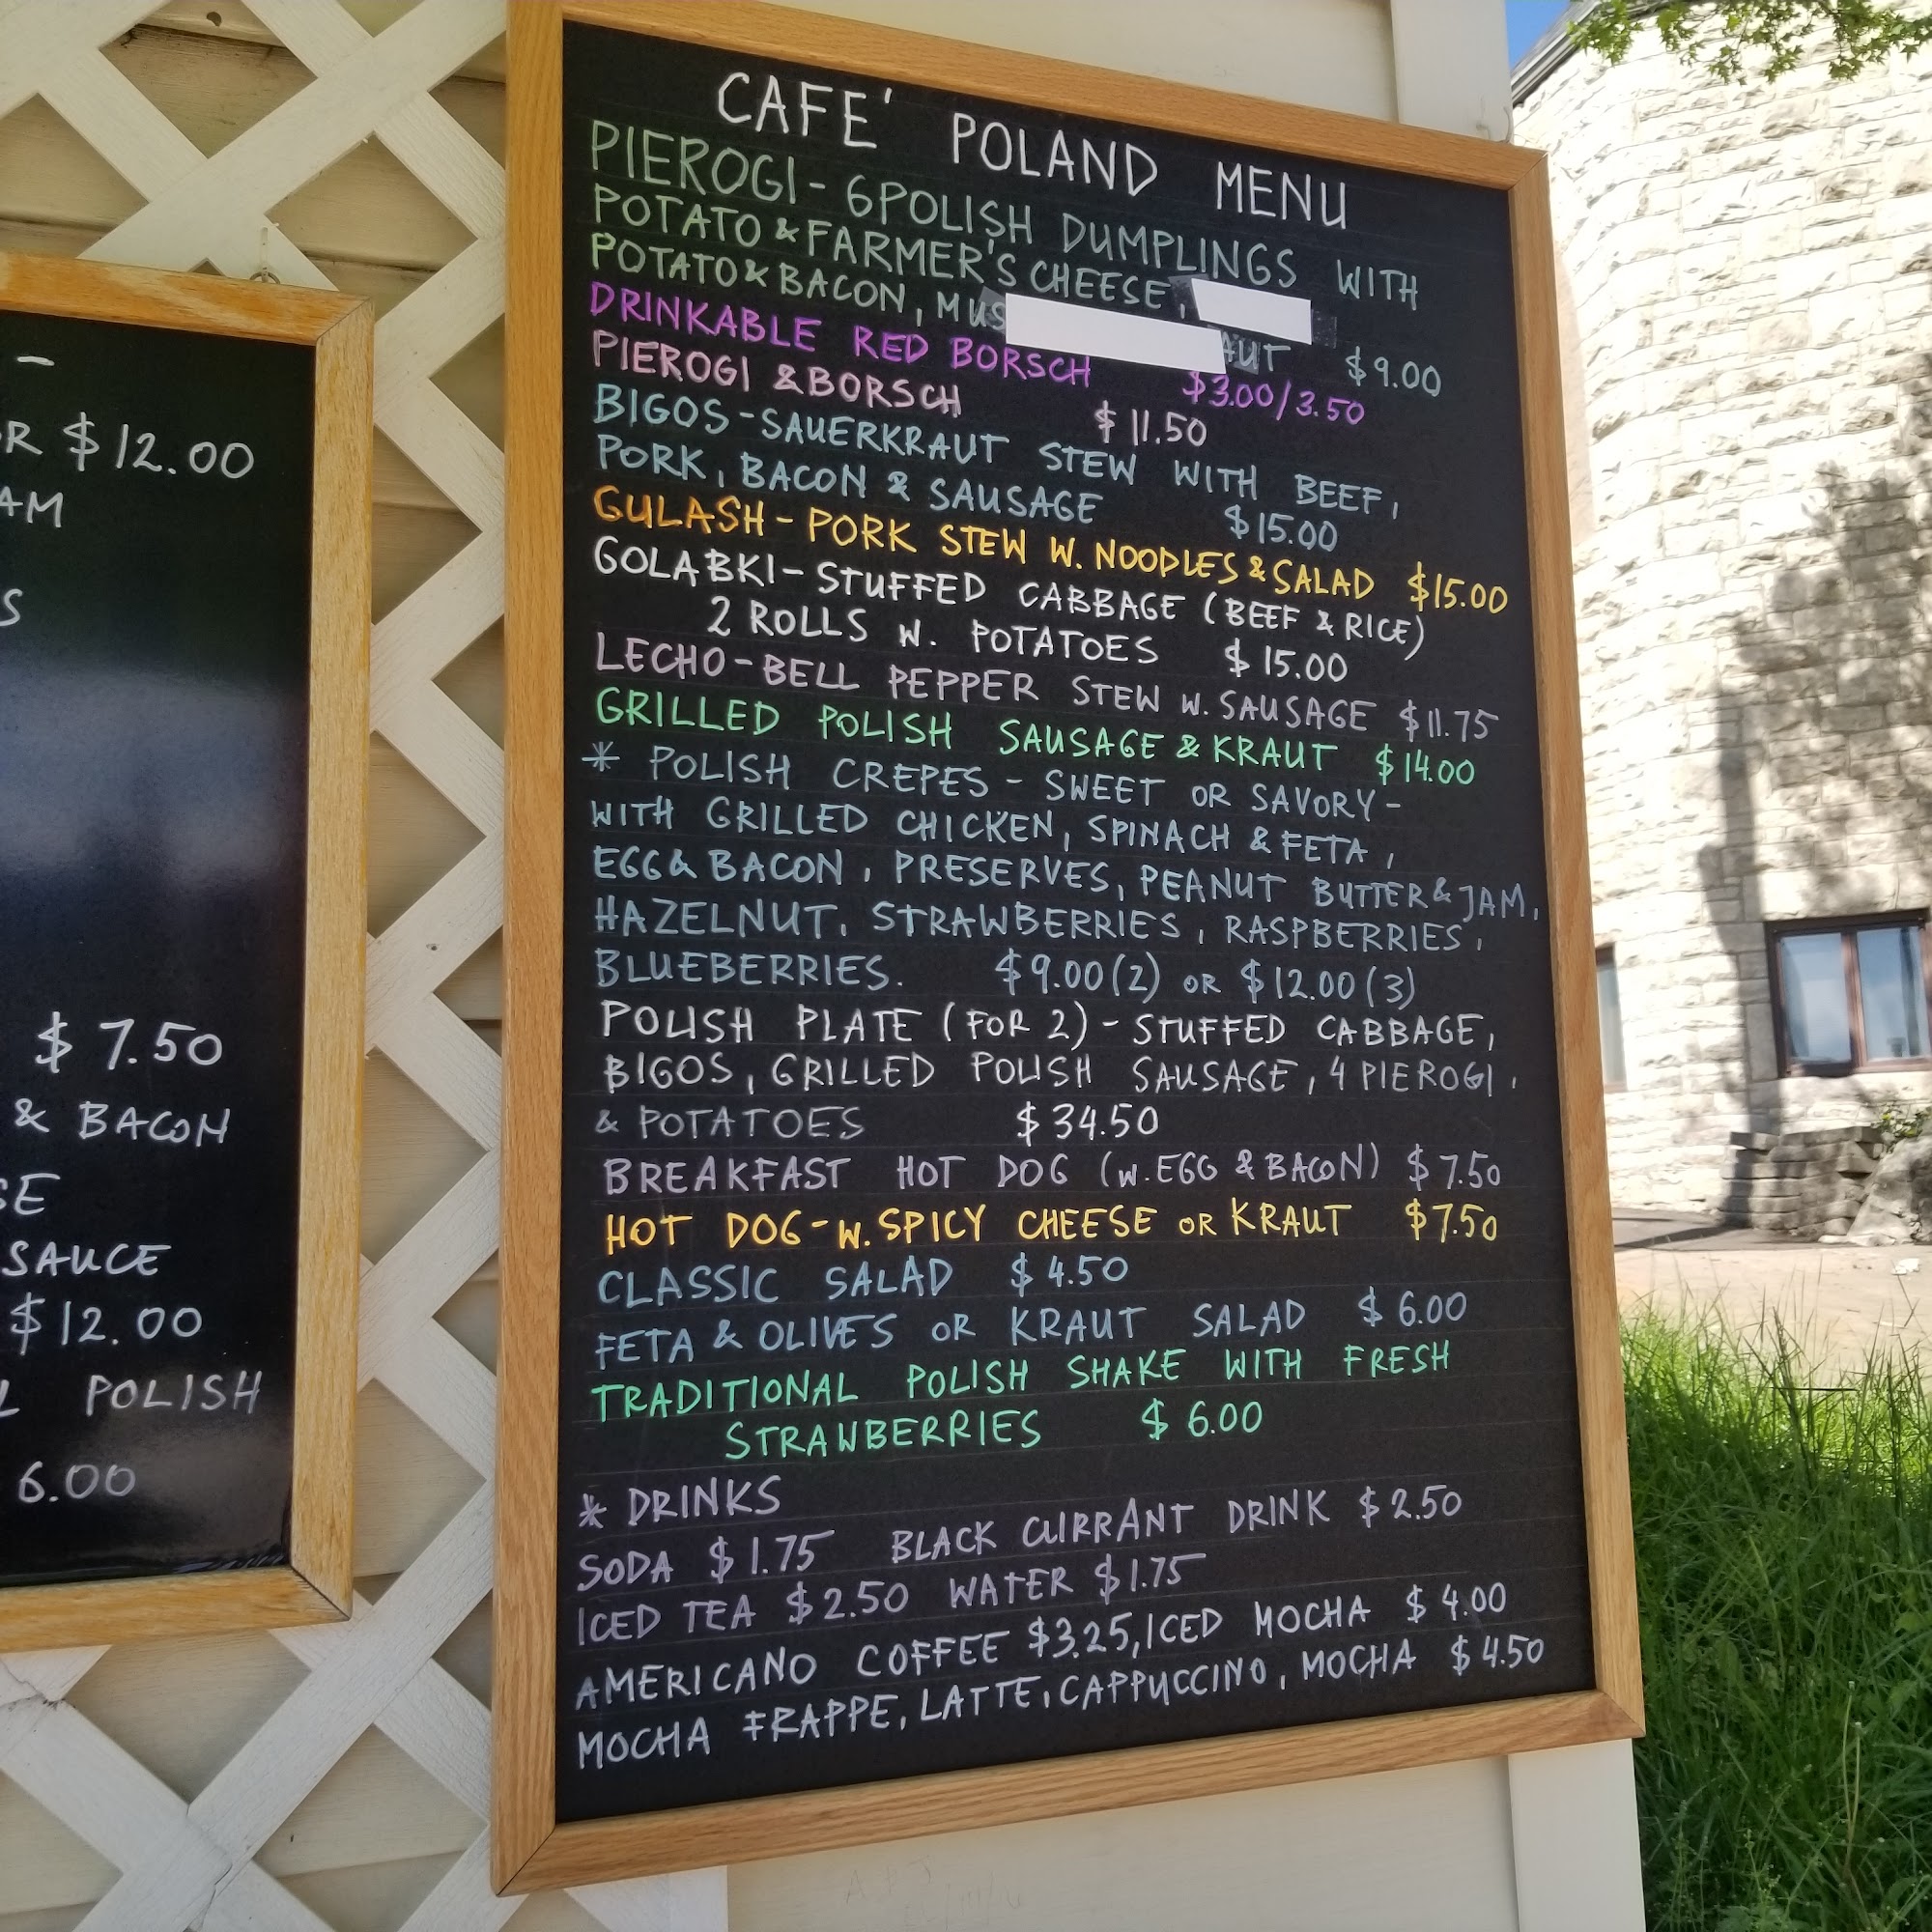 R $12.00
AM
S
$7.50
& BACON
SE
SAUCE
$12.00
L POLISH
6.00
CAFE' POLAND MENU
PIEROGI - 6 POLISH DUMPLINGS WITH
POTATO & FARMER'S CHEESE,
POTATO & BACON, MUS AUT $9.00
DRINKABLE RED BORSCH $3.00/3.50
PIEROGI & BORSCH $11.50
BIGOS - SAUERKRAUT STEW WITH BEEF,
PORK, BACON & SAUSAGE $15.00
GULASH - PORK STEW W. NOODLES & SALAD $15.00
GOLABKI - STUFFED CABBAGE (BEEF & RICE)
2 ROLLS W. POTATOES $15.00
LECHO - BELL PEPPER STEW W. SAUSAGE $11.75
GRILLED POLISH SAUSAGE & KRAUT $14.00
* POLISH CREPES - SWEET OR SAVORY -
WITH GRILLED CHICKEN, SPINACH & FETA,
EGG & BACON, PRESERVES, PEANUT BUTTER & JAM,
HAZELNUT, STRAWBERRIES, RASPBERRIES,
BLUEBERRIES. $9.00 (2) OR $12.00 (3)
POLISH PLATE (FOR 2) - STUFFED CABBAGE,
BIGOS, GRILLED POLISH SAUSAGE, 4 PIEROGI,
& POTATOES $34.50
BREAKFAST HOT DOG (W. EGG & BACON) $7.50
HOT DOG - W. SPICY CHEESE OR KRAUT $7.50
CLASSIC SALAD $4.50
FETA & OLIVES OR KRAUT SALAD $6.00
TRADITIONAL POLISH SHAKE WITH FRESH
STRAWBERRIES $6.00
* DRINKS
SODA $1.75 BLACK CURRANT DRINK $2.50
ICED TEA $2.50 WATER $1.75
AMERICANO COFFEE $3.25, ICED MOCHA $4.00
MOCHA FRAPPE, LATTE, CAPPUCCINO, MOCHA $4.50